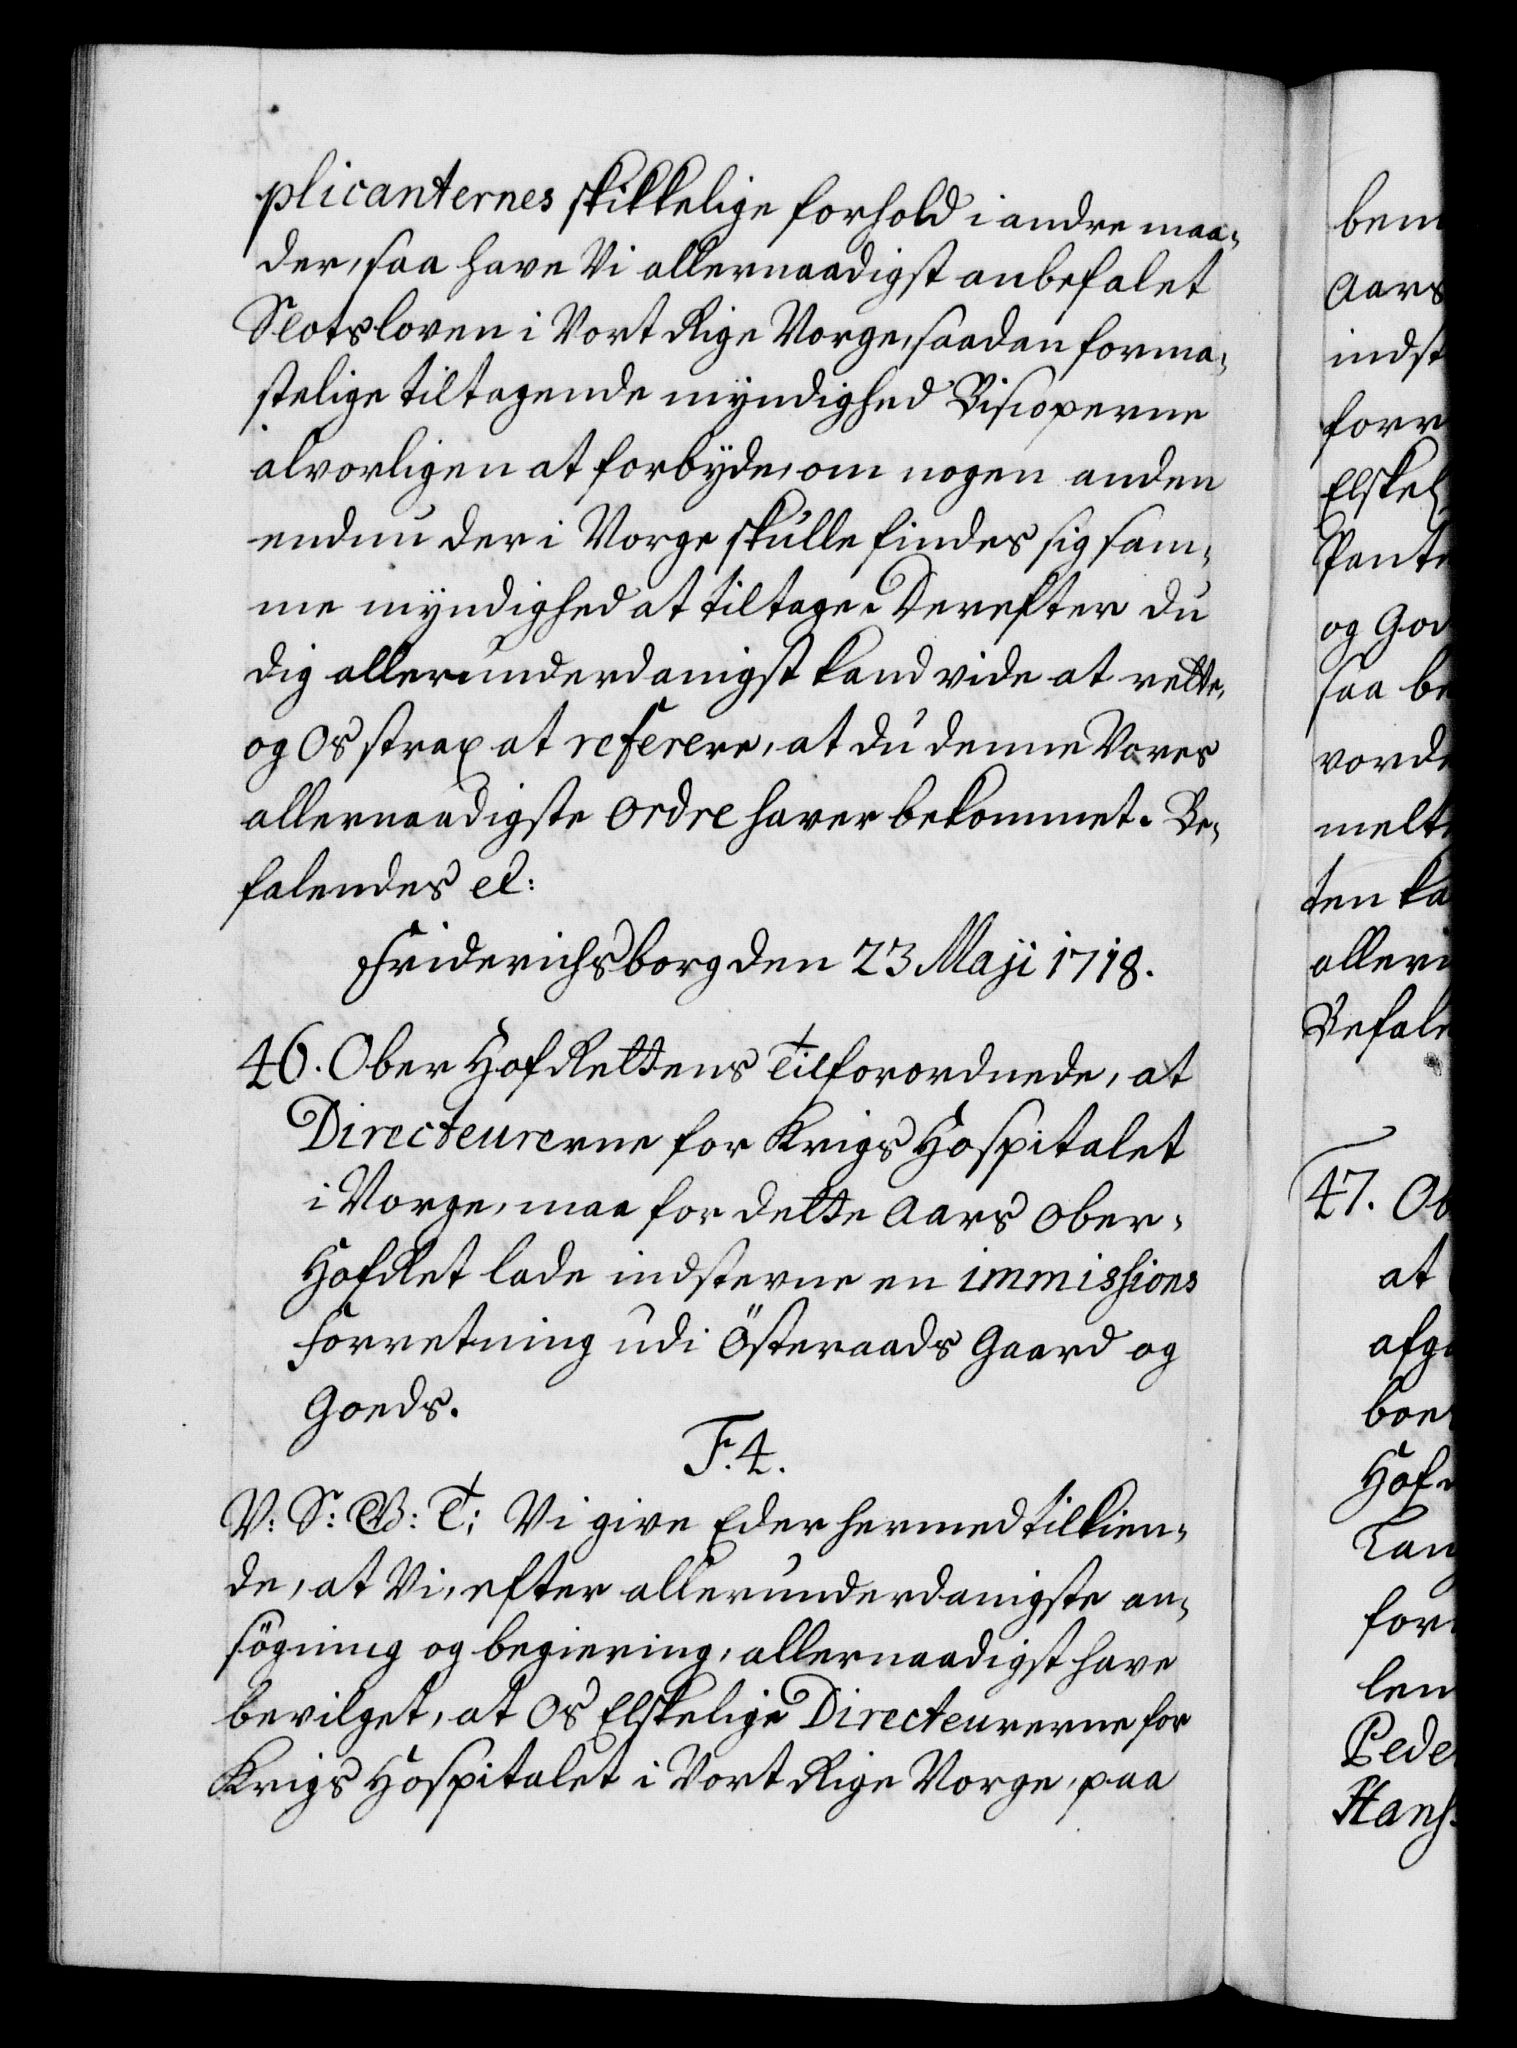 plicanternes skikkelige forhold i andre maa-
der, saa have Vi allernaadigst anbefalet
Slotsloven i Vort Rige Norge, saadan forma-
stelige tiltagende myndighed Bisioperne
alvorligen at forbyde, om nogen anden
endnu der i Norge skulle findes sig sam-
me myndighed at tiltage. Derefter du
dig allerunderdanigst kand vide at rette,
og Os strax at referere, at du denne Vores
allernaadigste Ordre haver bekommet. Be-
falendes etc:
Friderichsborg den 23 Maji 1718.
46. Ober Hof Rettens Tilforordnede, at
Directeurerne for Krigs Hospitalet
i Norge, maa for dette Aars Ober-
Hof Ret lade indstevne en immissions
Forretning udi Österaads Gaard og
Goeds.
F. 4.
V: S: G: B: T: Vi give Eder hermed tilkien-
de, at Vi, efter allerunderdanigste an-
søgning og begiering, allernaadigst have
bevilget, at Os Elskelige Directeurerne for
Krigs Hospitalet i Vort Rige Norge, paa
bem
Aars
indst
forr
Elskel
Pant
og God
saa be
vorde
melt
ten ka
aller
Befale
47. Ob
at
afg
boe
Hof
Lan
for
len
Pede
Hans